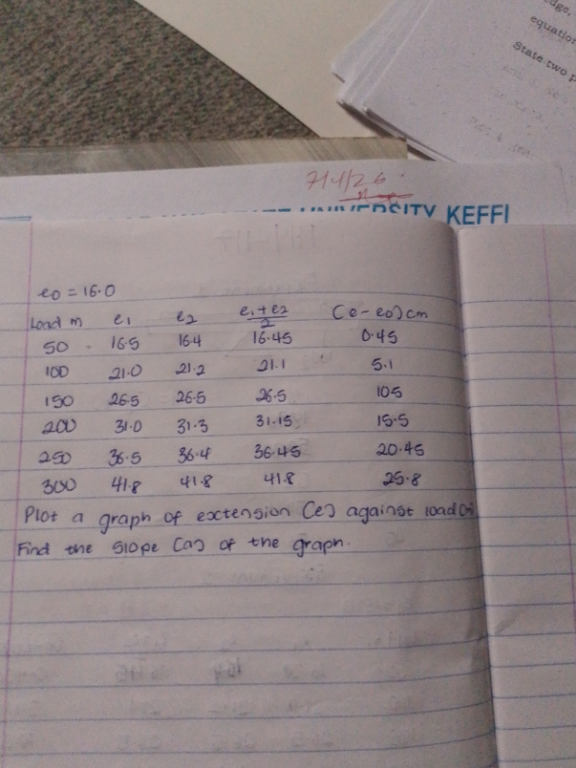 edge,
equation
State two p
7/4/26
UNIVERSITY KEFFI
e0 = 16.0
Load m e1 e2 e1 + e2 / 2 (e - e0) cm
50 - 16.5 16.4 16.45 0.45
100 21.0 21.2 21.1 5.1
150 26.5 26.5 26.5 105
200 31.0 31.3 31.15 15.5
250 36.5 36.4 36.45 20.45
300 41.8 41.8 41.8 25.8
Plot a graph of extension (e) against load (m)
Find the slope (a) of the graph.